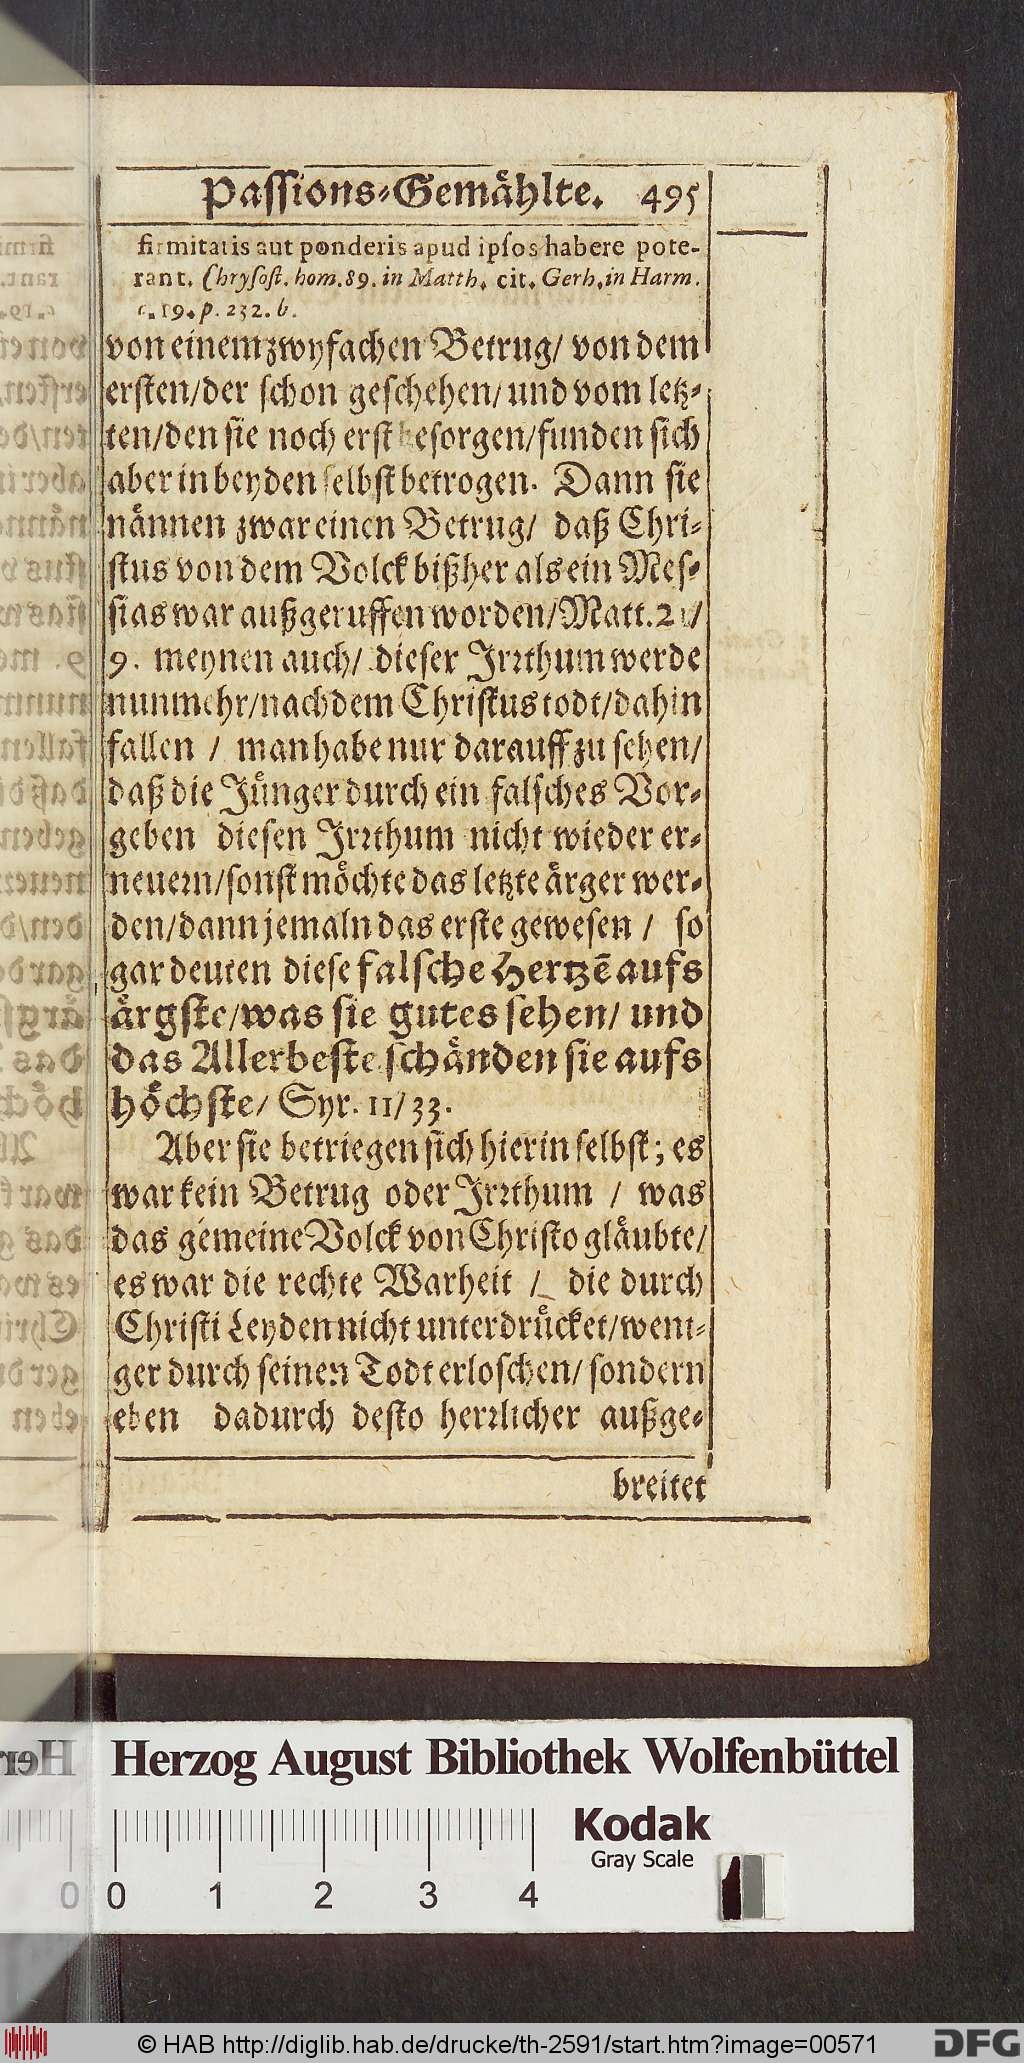 Passions-Gemählte. 495
firmitatis aut ponderis apud ipsos habere pote-
rant. Chrysost. hom. 89. in Matth. cit. Gerh. in Harm.
c. 19. p. 232. b.
von einem zwyfachen Betrug/ von dem
ersten/ der schon geschehen/ und vom letz-
ten/ den sie noch erst besorgen/ funden sich
aber in beyden selbst betrogen. Dann sie
nännen zwar einen Betrug/ daß Chri-
stus von dem Volck bißher als ein Mes-
sias war außgeruffen worden/ Matt. 21/
9. meynen auch/ dieser Irrthum werde
nunmehr/ nachdem Christus todt/ dahin
fallen / man habe nur darauff zu sehen/
daß die Jünger durch ein falsches Vor-
geben diesen Irrthum nicht wieder er-
neuern/ sonst möchte das letzte ärger wer-
den/ dann jemaln das erste gewesen / so
gar deuten diese falsche Hertzē aufs
ärgste/ was sie gutes sehen/ und
das Allerbeste schänden sie aufs
höchste/ Syr. 11/ 33.
Aber sie betriegen sich hierin selbst; es
war kein Betrug oder Irrthum / was
das gemeine Volck von Christo gläubte/
es war die rechte Warheit / die durch
Christi Leyden nicht unterdrücket/ weni-
ger durch seinen Todt erloschen/ sondern
eben dadurch desto herrlicher außge-
breitet
Herzog August Bibliothek Wolfenbüttel
Kodak
Gray Scale
0 0 1 2 3 4
© HAB http://diglib.hab.de/drucke/th-2591/start.htm?image=00571
DFG